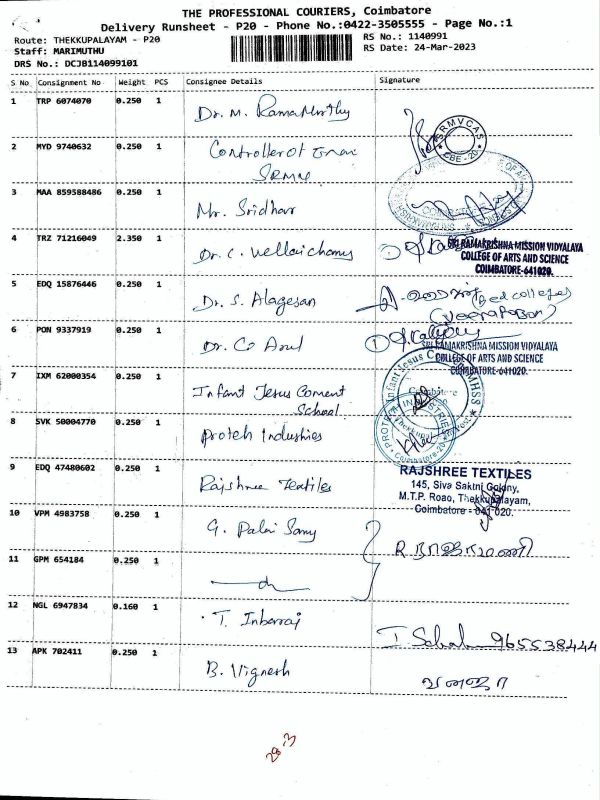 THE PROFESSIONAL COURIERS, Coimbatore
Delivery Runsheet - P20 - Phone No.:0422-3505555 - Page No.:1
Route: THEKKUPALAYAM - P20
RS No.: 1140991
Staff: MARIMUTHU
RS Date: 24-Mar-2023
DRS No.: DCJB114099101
S No Consignment No Weight PCS Consignee Details Signature
1 TRP 6074070 0.250 1 Dr. M. RamaMurthy
SRMVCAS
CBE-20
2 MYD 9740632 0.250 1 Controller of
SRMV
3 MAA 859588486 0.250 1 Mr. Sridhar
4 TRZ 71216049 2.350 1 Dr. C. Vellaichamy
SRI RAMAKRISHNA MISSION VIDYALAYA
COLLEGE OF ARTS AND SCIENCE
COIMBATORE-641020.
5 EDQ 15876446 0.250 1 Dr. S. Alagesan
6 PON 9337919 0.250 1 Dr. Arul
SRI RAMAKRISHNA MISSION VIDYALAYA
COLLEGE OF ARTS AND SCIENCE
COIMBATORE-641020.
7 IXM 62000354 0.250 1 Infant Jesus Conment
School
8 SVK 50004770 0.250 1 Proteh Industries
9 EDQ 47480602 0.250 1 Rajshree Textiles
RAJSHREE TEXTILES
145, Siva Sakthi Colony,
M.T.P. Road, Thekkupalayam,
Coimbatore - 641 020.
10 VPM 4983758 0.250 1 G. Palni Samy
11 GPM 654184 0.250 1 do
12 NGL 6947834 0.160 1 T. Inbarraj
965538444
13 APK 702411 0.250 1 B. Vignesh
வனஜா